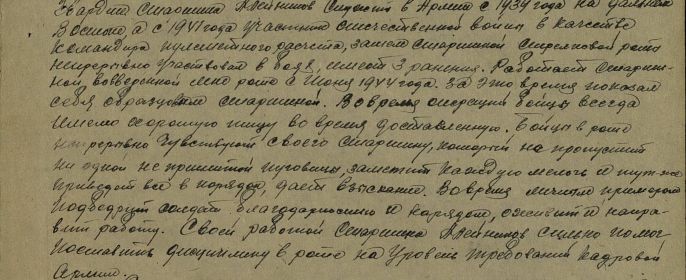 Гвардии Старшина Алейников служит в Армии с 1939 года на дальнем
Востоке, а с 1941 года участник отечественной войны в качестве
командира пулеметного расчета, затем старшиной стрелковой роты
непрерывно участвовал в боях, имеет 3 ранения. Работает старши-
ной вверенной мне роте с Июня 1944 года. За это время показал
себя образцовым старшиной. Во время операций бойцы всегда
имели хорошую пищу во время доставленную. Бойцы в роте
непрерывно чувствуют своего старшину, который не пропустит
ни одной не пришитой пуговицы, заметит каждую мелочь и тут же
приведет все в порядок, дает взыскание. Во время личным примером
подбодрит солдат благодарностью и нарядом, оживит и напра-
вит работу. Своей работой Старшина Алейников сильно помог
поставить дисциплину в роте на уровень требований кадровой
Армии.